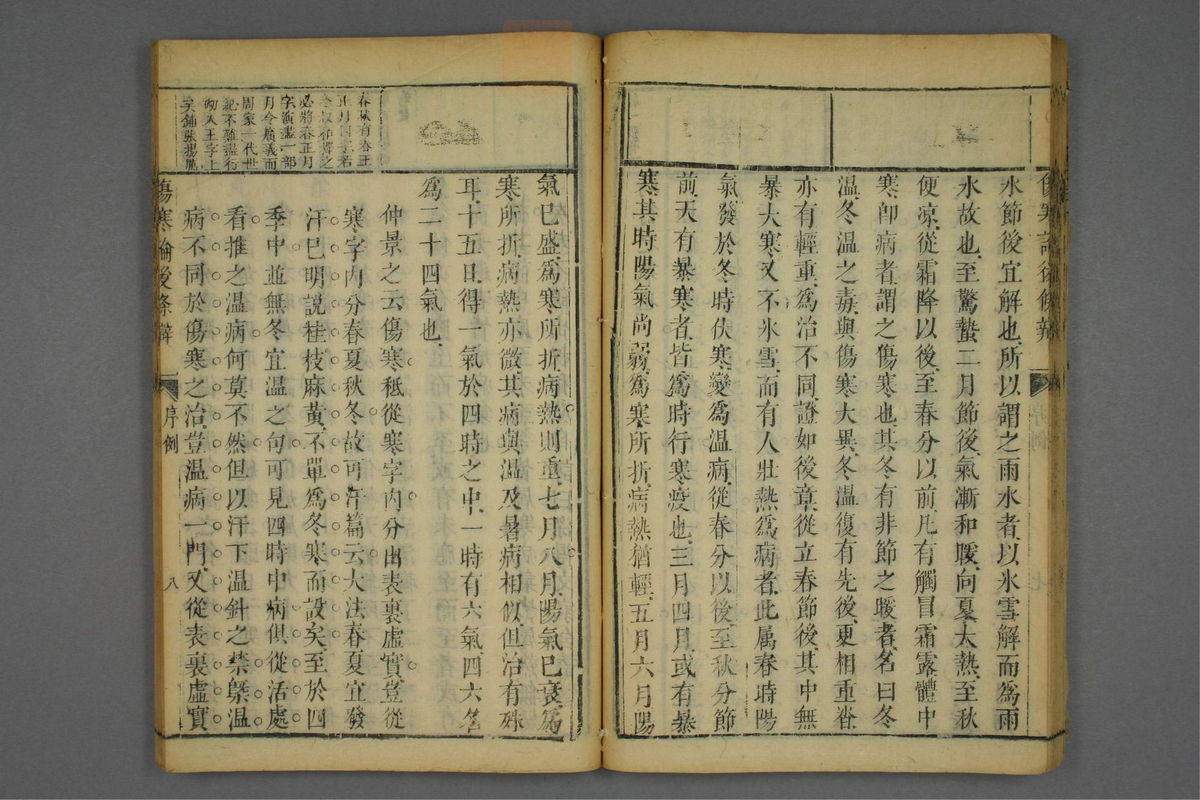 水節後宜解也所以謂之雨水者以氷雪解而為雨
水故也至驚蟄二月節後氣漸和暖向夏大熱至秋
便凉從霜降以後至春分以前凡有觸冒霜露體中
寒卽病者謂之傷寒也其冬有非節之暖者名曰冬
温冬温之毒與傷寒大異冬温復有先後更相重沓
亦有輕重為治不同證如後章從立春節後其中無
暴大寒又不氷雪而有人壯熱為病者此属春時陽
氣發於冬時伏寒變為温病從春分以後至秋分節
前天有暴寒者皆為時行寒疫也三月四月或有暴
寒其時陽氣尚弱為寒所折病熱猶輕五月六月陽
氣已盛為寒所折病熱則重七月八月陽氣已衰為
寒所折病熱亦微其病與温及暑病相似但治有殊
耳十五日得一氣於四時之中一時有六氣四六名
為二十四氣也
春秋有春王
正月四字若
必將春正月
字演盡一部
月令扇義而
周家一代世
紀不難盡行
吻入王字上
矣鋪張揚厲
仲景之云傷寒秪從寒字內分出表裏虛實豈從
寒字內分春夏秋冬故可汗篇云大法春夏宜發
汗巳明説桂枝麻黃不單為冬寒而設矣至於四
季中並無冬宜温之句可見四時中病俱從活處
看推之温病何莫不然但以汗下温針之禁槩温
病不同於傷寒之治豈温病一門又從表裏虛實
傷寒論後條辯
序例
八